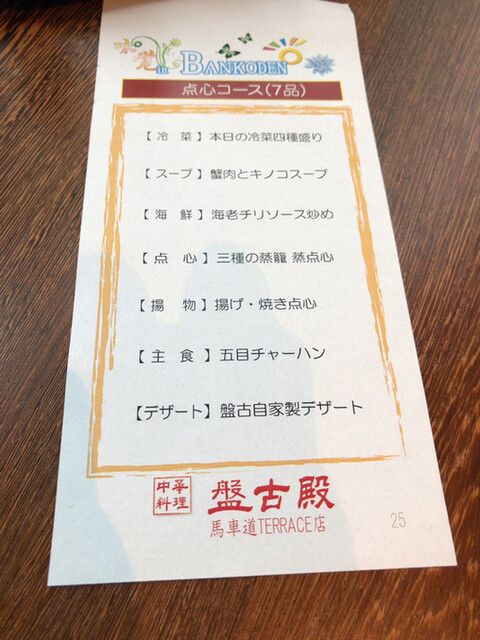 in BANKODEN
点心コース(7品)
【 冷 菜 】本日の冷菜四種盛り
【 スープ 】蟹肉とキノコスープ
【 海 鮮 】海老チリソース炒め
【 点 心 】三種の蒸籠 蒸点心
【 揚 物 】揚げ・焼き点心
【 主 食 】五目チャーハン
【デザート】盤古自家製デザート
中華料理 盤古殿
馬車道TERRACE店
25